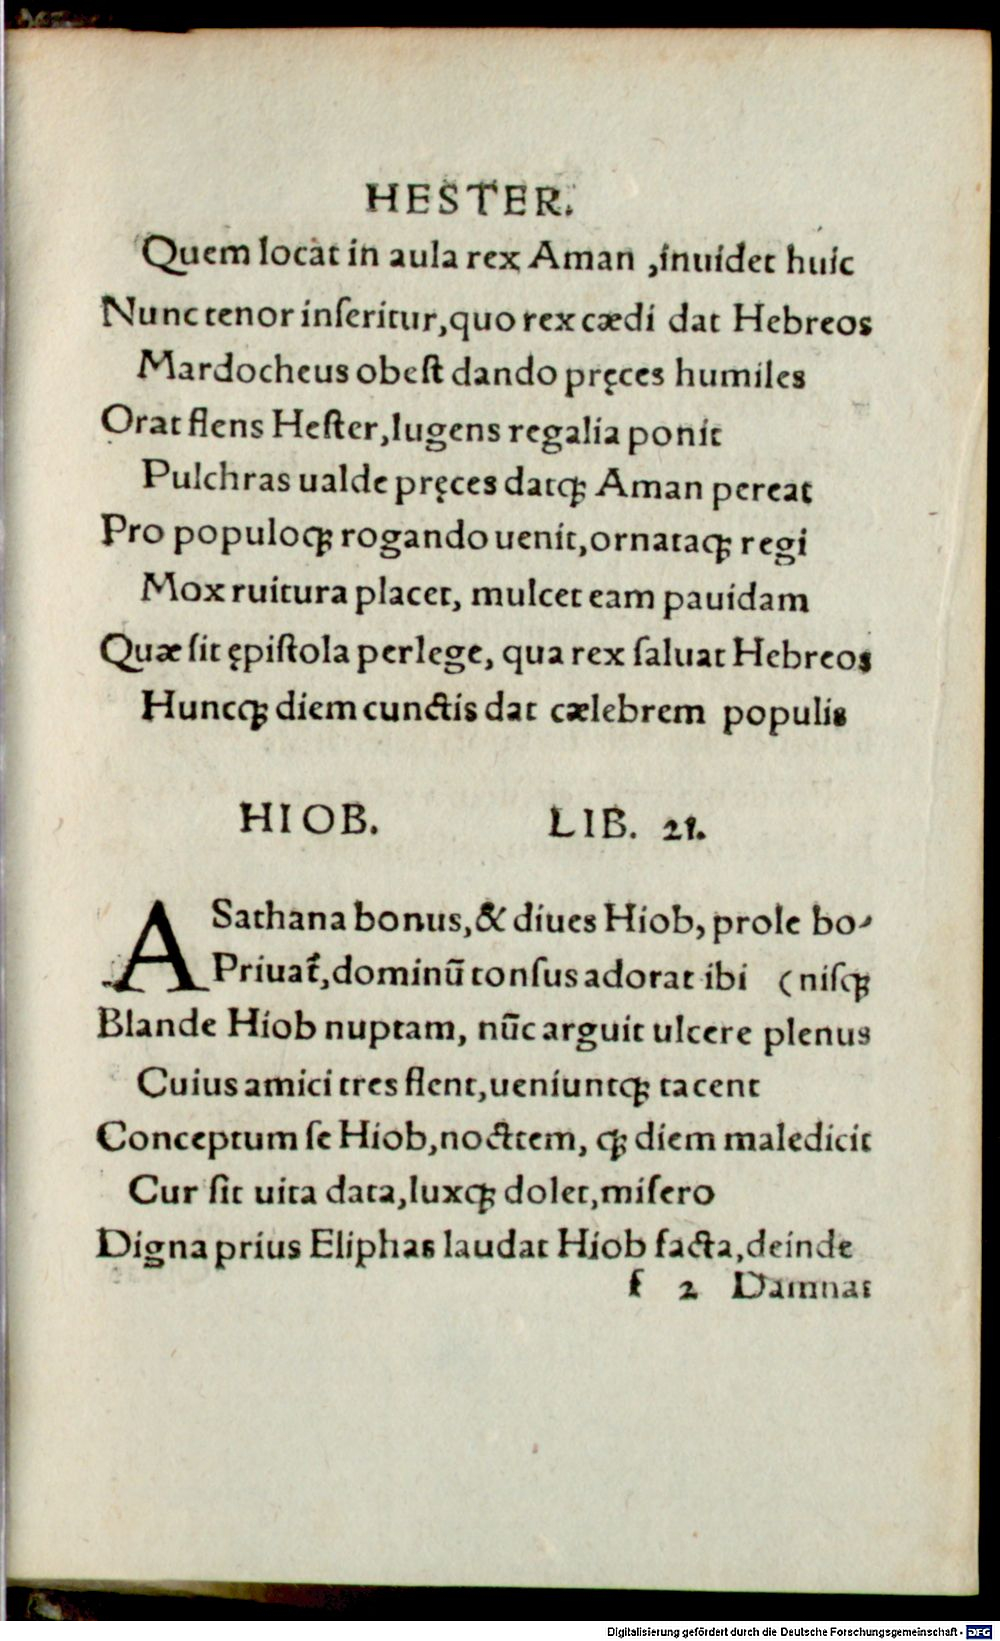 HESTER.
Quem locat in aula rex Aman ,inuidet huic
Nunc tenor inſeritur,quo rex cædi dat Hebreos
Mardocheus obeſt dando pręces humiles
Orat flens Heſter,lugens regalia ponit
Pulchras ualde pręces datqꝫ Aman pereat
Pro populoqꝫ rogando uenit,ornataqꝫ regi
Mox ruitura placet, mulcet eam pauidam
Quæ ſit ępiſtola perlege, qua rex ſaluat Hebreos
Huncqꝫ diem cunctis dat cælebrem populis
HIOB. LIB. 21.
A Sathana bonus,& diues Hiob, prole bo-
Priuat᷑,dominū tonſus adorat ibi (niſqꝫ
Blande Hiob nuptam, nūc arguit ulcere plenus
Cuius amici tres flent,ueniuntqꝫ tacent
Conceptum ſe Hiob,noctem, qꝫ diem maledicit
Cur ſit uita data,luxqꝫ dolet,miſero
Digna prius Eliphas laudat Hiob facta,deinde
f 2 Damnat
Digitalisierung gefördert durch die Deutsche Forschungsgemeinschaft - DFG